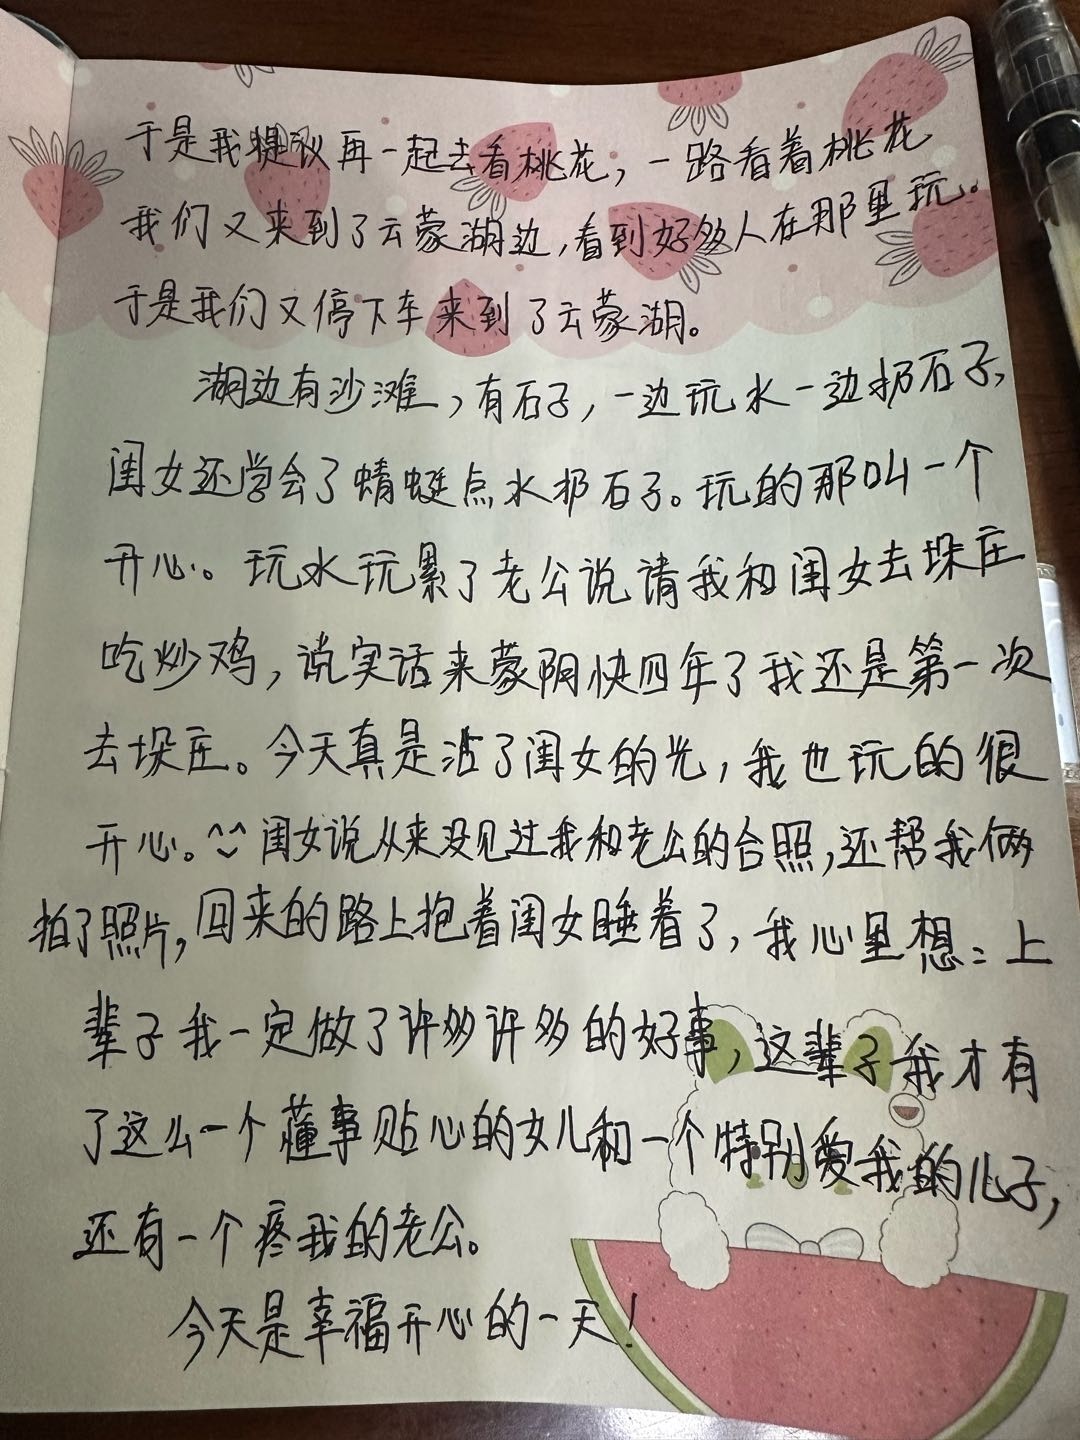 于是我提议再一起去看桃花，一路看着桃花
我们又来到了云蒙湖边，看到好多人在那里玩。
于是我们又停下车来到了云蒙湖。
湖边有沙滩，有石子，一边玩水一边扔石子，
闺女还学会了蜻蜓点水扔石子。玩的那叫一个
开心。玩水玩累了老公说请我和闺女去垛庄
吃炒鸡，说实话来蒙阴快四年了我还是第一次
去垛庄。今天真是沾了闺女的光，我也玩的很
开心。^^闺女说从来没见过我和老公的合照，还帮我俩
拍了照片，回来的路上抱着闺女睡着了，我心里想：上
辈子我一定做了许多许多的好事，这辈子我才有
了这么一个懂事贴心的女儿和一个特别爱我的儿子，
还有一个疼我的老公。
今天是幸福开心的一天！